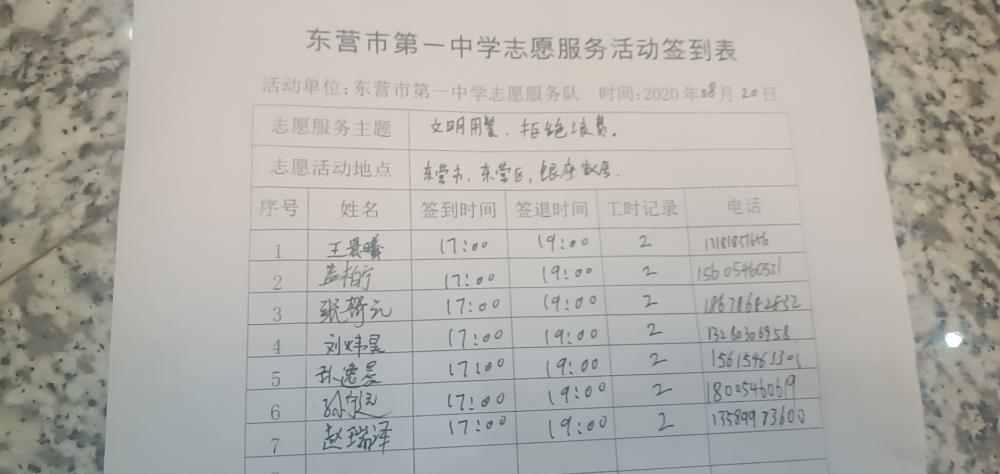 东营市第一中学志愿服务活动签到表
活动单位:东营市第一中学志愿服务队 时间:2020年08月20日
志愿服务主题 文明用餐、拒绝浪费。
志愿活动地点 东营市,东营区,银座家居.
序号 姓名 签到时间 签退时间 工时记录 电话
1 王晨曦 17:00 19:00 2
2 17:00 19:00 2 15605460521
3 17:00 19:00 2 18678682832
4 刘炜昊 17:00 19:00 2 13280306958
5 孙逸晨 17:00 19:00 2 15615463301
6 17:00 19:00 2 18005460619
7 赵瑞泽 17:00 19:00 2 13589973600